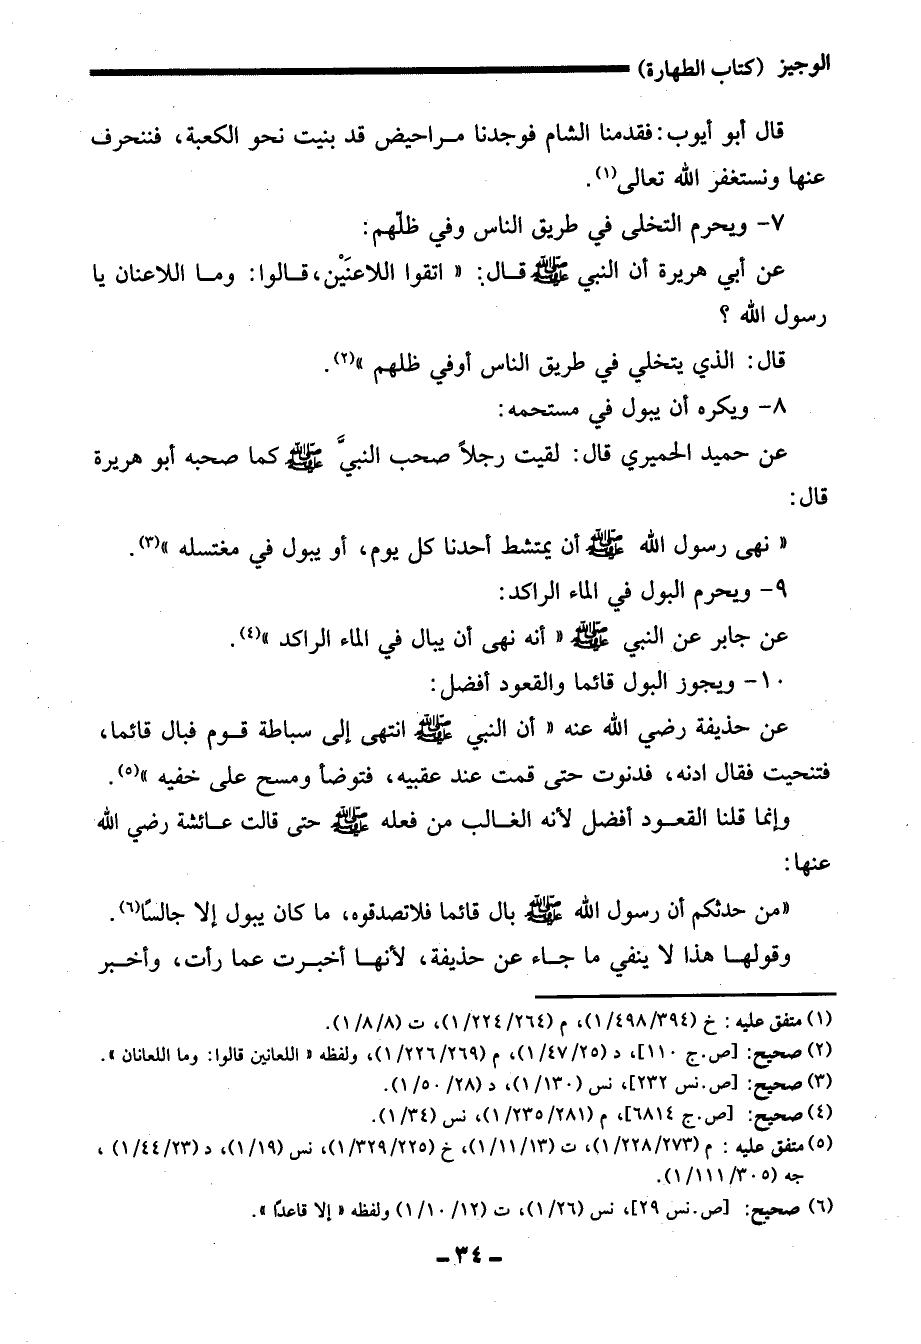 الوجيز (كتاب الطهارة)
قال أبو أيوب: فقدمنا الشام فوجدنا مراحيض قد بنيت نحو الكعبة، فننحرف
عنها ونستغفر الله تعالى(١).
٧- ويحرم التخلى في طريق الناس وفي ظلّهم:
عن أبي هريرة أن النبي ﷺ قال: « اتقوا اللاعنَيْن، قالوا: وما اللاعنان يا
رسول الله ؟
قال: الذي يتخلي في طريق الناس أوفي ظلهم »(٢).
٨- ويكره أن يبول في مستحمه:
عن حميد الحميري قال: لقيت رجلاً صحب النبيَّ ﷺ كما صحبه أبو هريرة
قال:
« نهى رسول الله ﷺ أن يمتشط أحدنا كل يوم، أو يبول في مغتسله »(٣).
٩- ويحرم البول في الماء الراكد:
عن جابر عن النبي ﷺ « أنه نهى أن يبال في الماء الراكد »(٤).
١٠- ويجوز البول قائما والقعود أفضل:
عن حذيفة رضي الله عنه « أن النبي ﷺ انتهى إلى سباطة قوم فبال قائما،
فتنحيت فقال ادنه، فدنوت حتى قمت عند عقبيه، فتوضأ ومسح على خفيه »(٥).
وإنما قلنا القعود أفضل لأنه الغالب من فعله ﷺ حتى قالت عائشة رضي الله
عنها:
«من حدثكم أن رسول الله ﷺ بال قائما فلاتصدقوه، ما كان يبول إلا جالسًا(٦).
وقولها هذا لا ينفي ما جاء عن حذيفة، لأنها أخبرت عما رأت، وأخبر
(١) متفق عليه : خ (١/٤٩٨/٣٩٤)، م (١/٢٢٤/٢٦٤)، ت (١/٨/٨).
(٢) صحيح: [ص.ج ١١٠]، د (١/٤٧/٢٥)، م (١/٢٢٦/٢٦٩)، ولفظه « اللعانين قالوا: وما اللعانان ».
(٣) صحيح: [ص.نس ٢٣٢]، نس (١/١٣٠)، د (١/٥٠/٢٨).
(٤) صحيح: [ص.ج ٦٨١٤]، م (١/٢٣٥/٢٨١)، نس (١/٣٤).
(٥) متفق عليه : م (١/٢٢٨/٢٧٣)، ت (١/١١/١٣)، خ (١/٣٢٩/٢٢٥)، نس (١/١٩)، د (١/٤٤/٢٣) ،
جه (١/١١١/٣٠٥).
(٦) صحيح: [ص.نس ٢٩]، نس (١/٢٦)، ت (١/١٠/١٢) ولفظه « إلا قاعدًا ».
- ٣٤ -